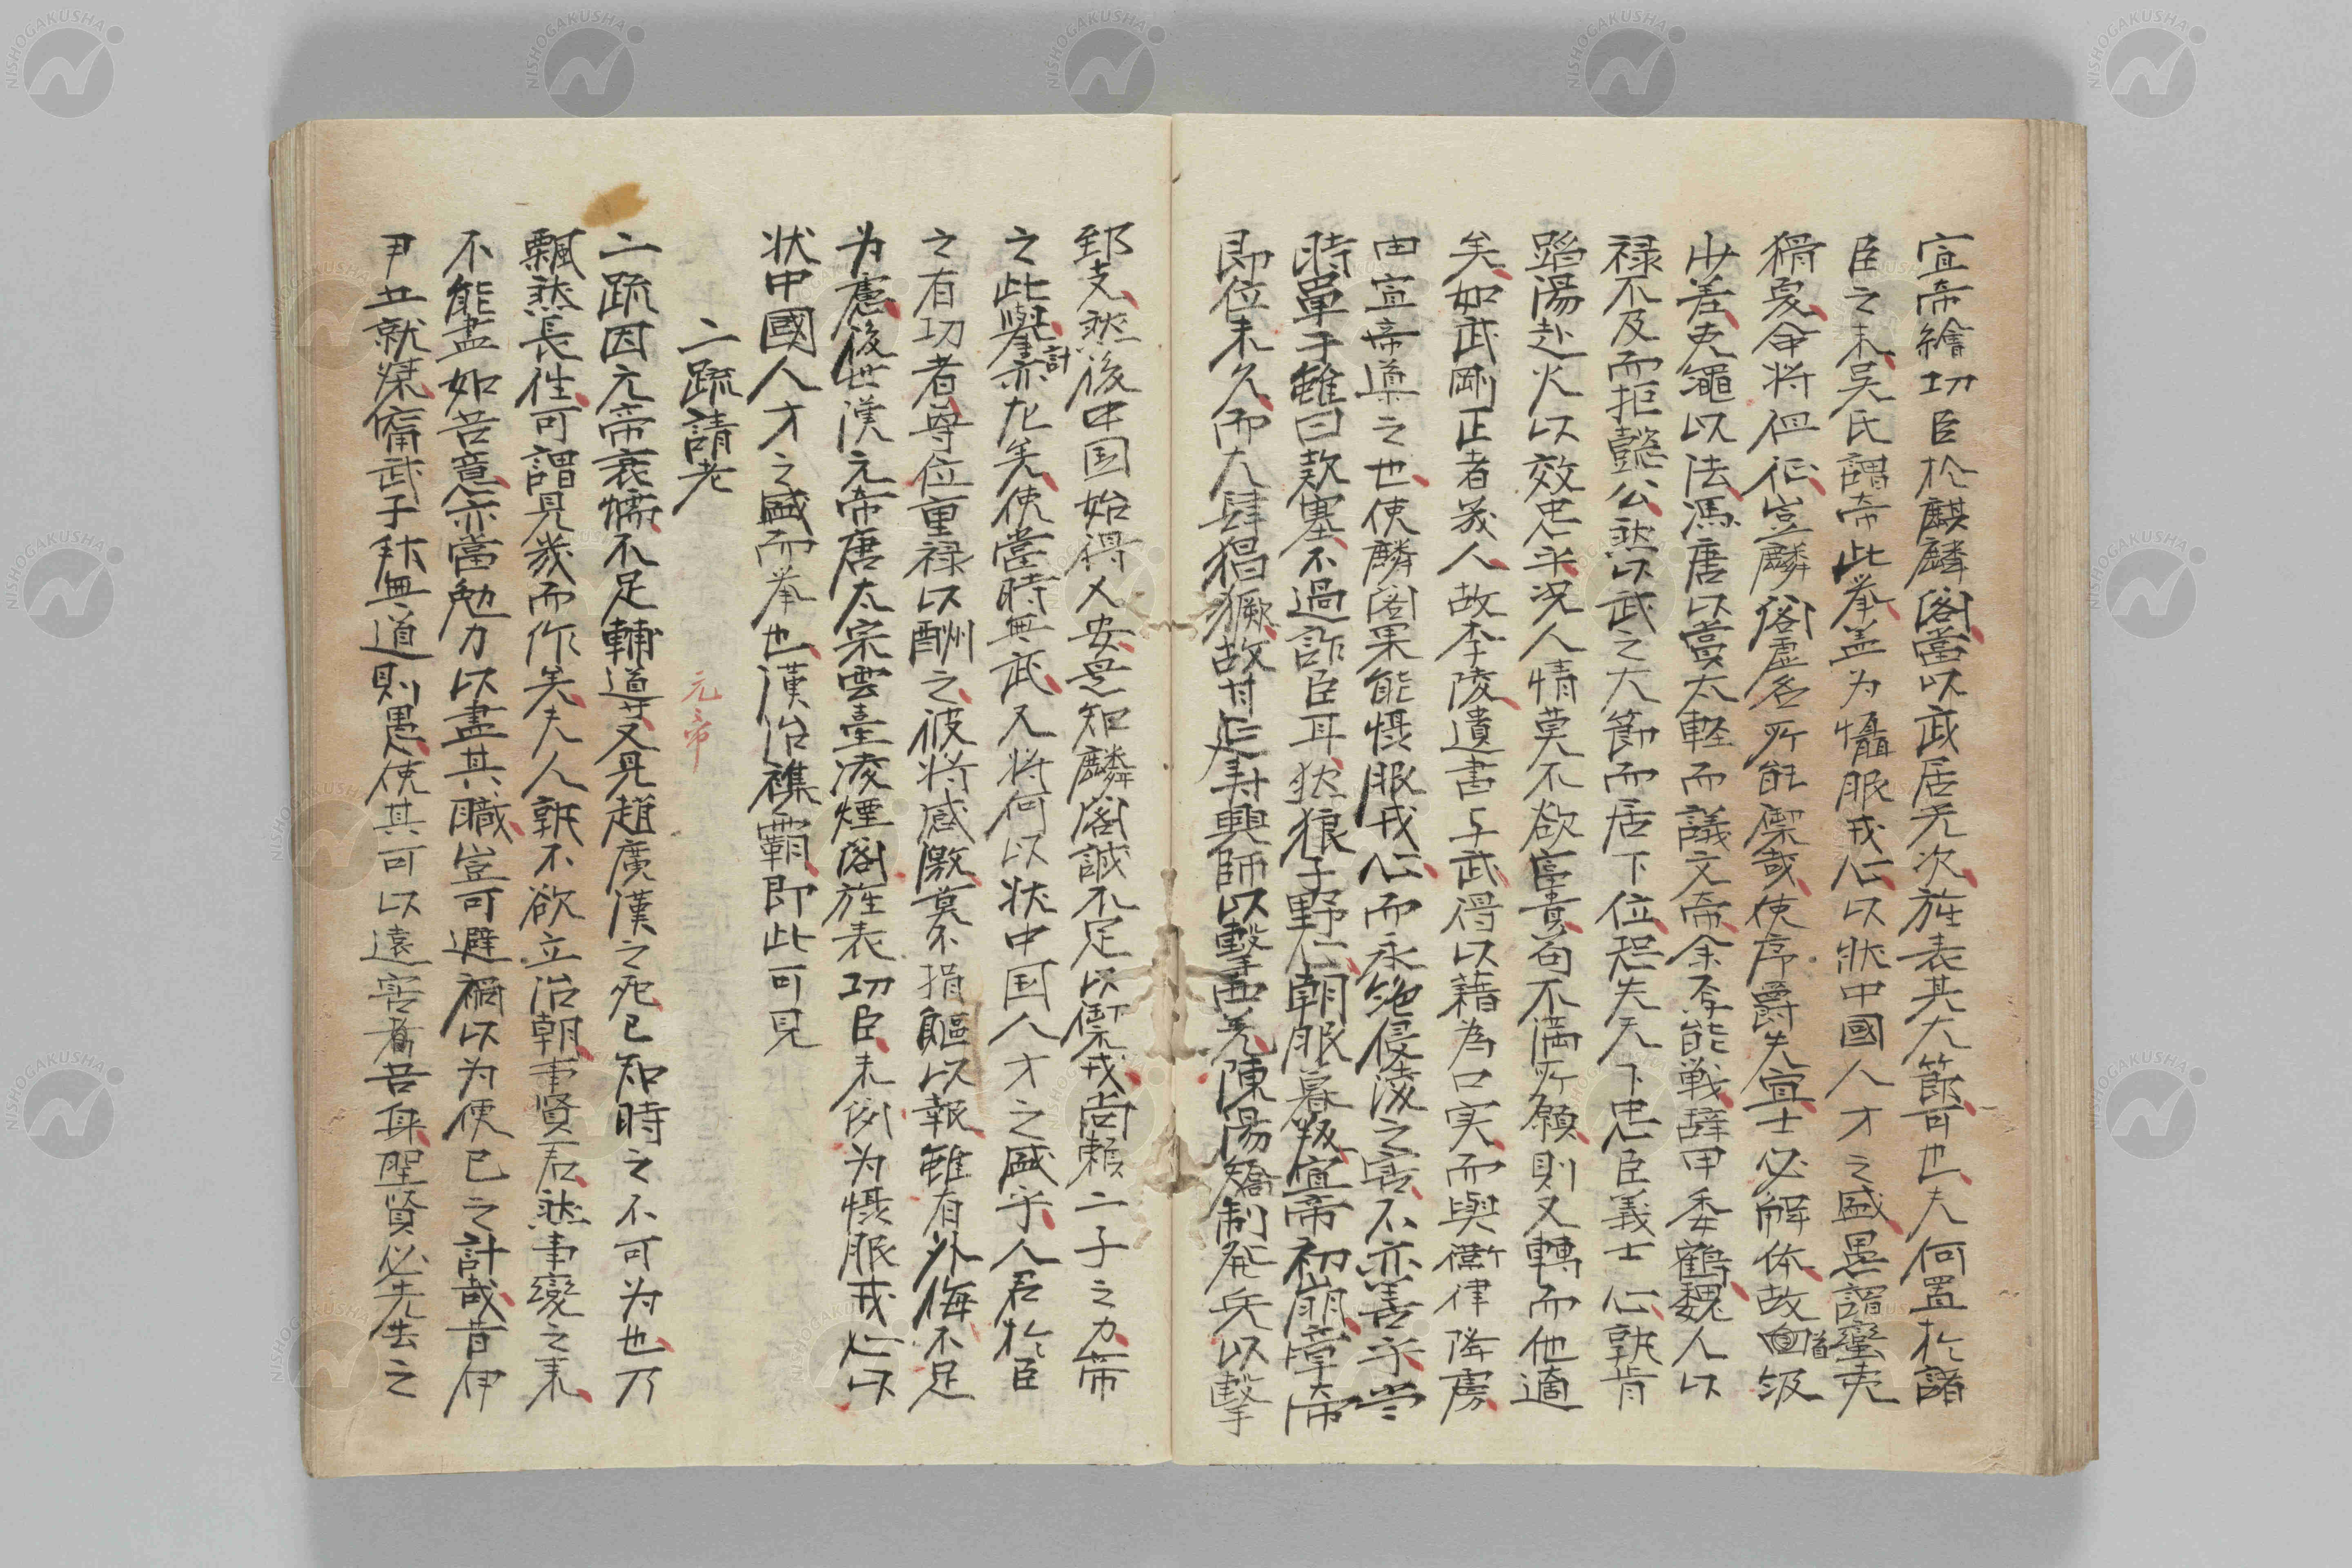 宣帝繪功臣於麒麟閣當以武居先次旌表其大節可也夫何置於諸
臣之末吳氏謂帝此挙盖为懾服戎心以狀中國人才之盛愚謂蠻夷
猾夏命将徂征豈麟閣虚名所能禦哉使序爵失宜士必解体故首級
少差吏繩以法馮唐以賞太軽而議文帝余不能戦辞甲委鶴魏人以
禄不及而拒懿公然以武之大節而居下位起失天下忠臣義士心孰肯
蹈湯赴火以效忠乎况人情莫不欲富貴苟不満所願則又轉而他適
矣如武剛正者幾人故李陵遺書与武得以藉為口実而與衛律降虜
由宣帝導之也使麟閣果能慑服戎心而永绝侵淩之害不亦善乎当
時單于雖曰款塞不過詐臣耳狄狼子野心朝服暮叛宣帝初崩章帝
即位未久而大肆猖獗故甘延寿興師以擊西羌陳湯矯制発兵以擊
郅支然後中国始得乂安是知麟閣誠不足以禦戎尚賴二子之力帝
之此擧計亦左矣使當時無武又将何以狀中国人才之盛乎人君於臣
之有功者尊位重禄以酬之彼将感激莫不捐軀以報雖有外侮不足
为慮後世漢元帝唐太宗雲臺凌煙閣旌表功臣未例为慑服戎心以
状中國人才之盛而挙也漢治襍霸即此可見
二疏請老
元帝
二疏因元帝衰懦不足輔導又見趙廣漢之死已知時之不可为也乃
飄然長徃可謂見幾而作矣夫人孰不欲立治朝事賢君然事變之来
不能盡如吾意亦當勉力以盡其職豈可避禍以为便己之計哉昔伊
尹五就桀甯武子称無道則愚使其可以遠害者吾身聖賢必先去之